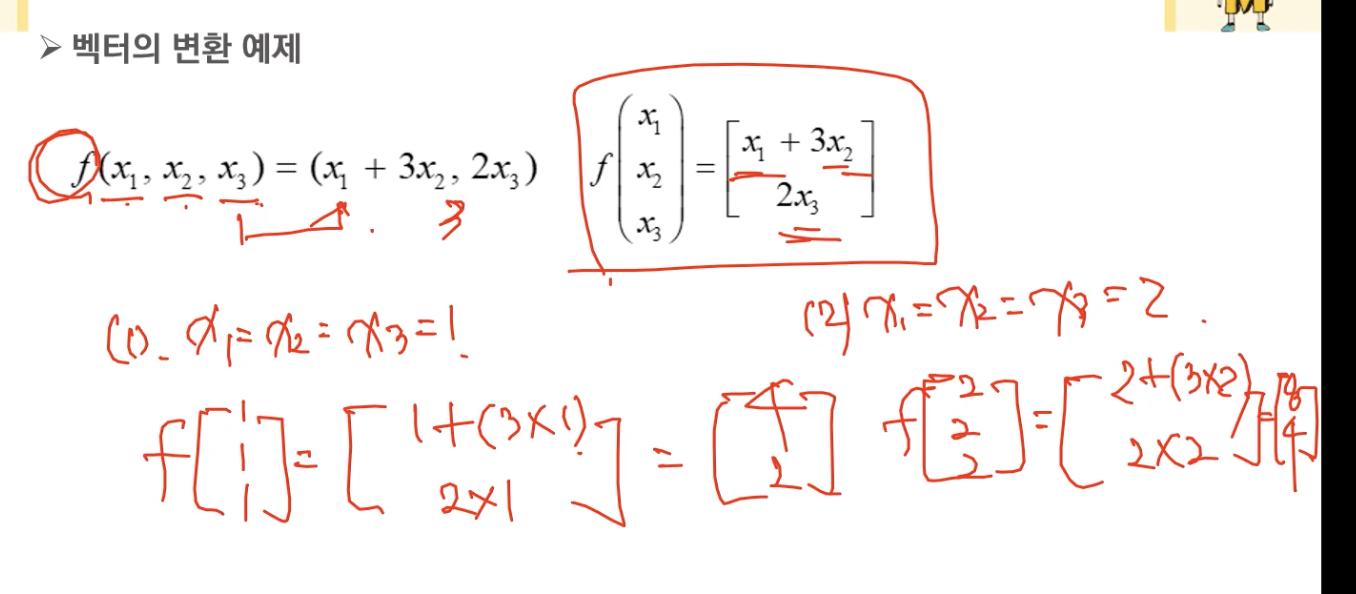 ➤ 벡터의 변환 예제
f(x₁, x₂, x₃) = (x₁ + 3x₂, 2x₃)
f(x₁ x₂ x₃) = [x₁ + 3x₂ 2x₃]
3
(1). x₁ = x₂ = x₃ = 1.
(2) x₁ = x₂ = x₃ = 2.
f[1 1 1] = [1+(3×1) 2×1] = [4 2]
f[2 2 2] = [2+(3×2) 2×2] = [8 4]